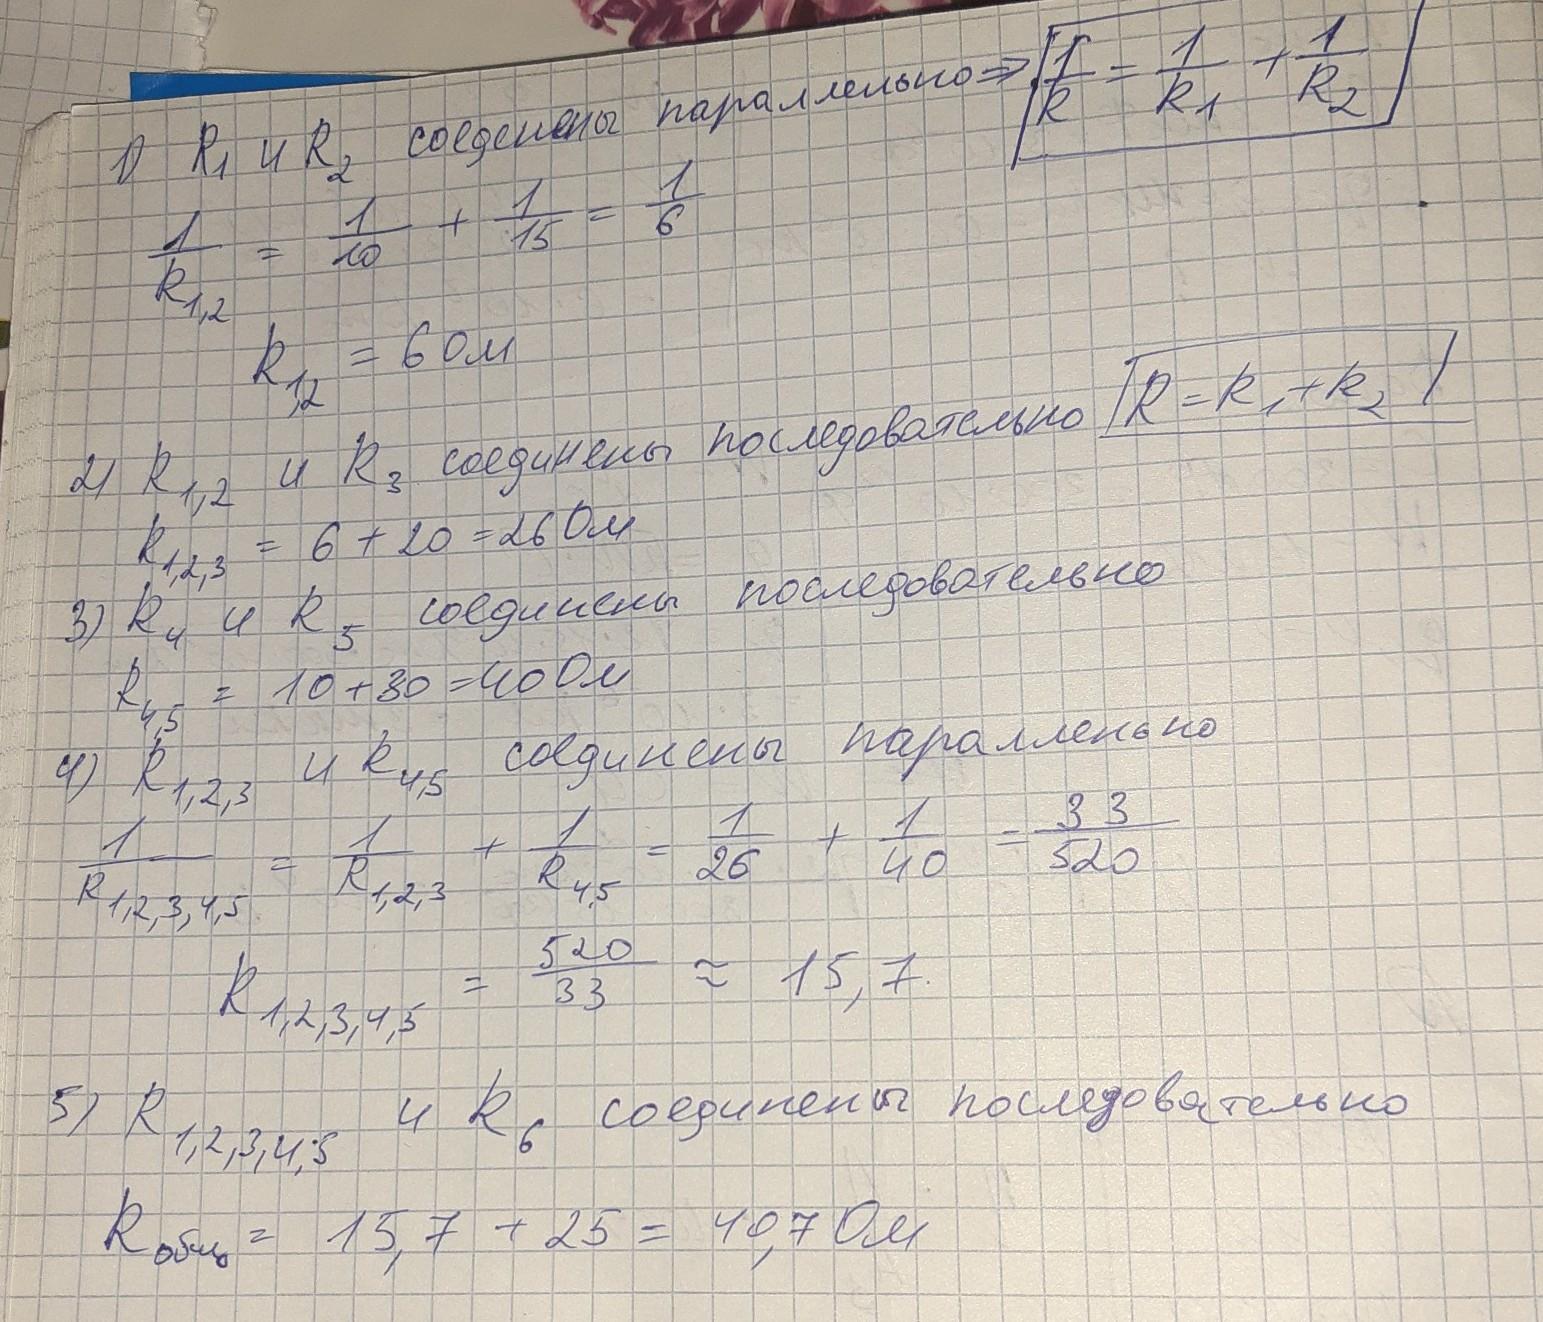 1) R1 и R2 соеденены параллельно ⇒ 1/R = 1/R1 + 1/R2
1/R1,2 = 1/10 + 1/15 = 1/6
R1,2 = 6 Ом
2) R1,2 и R3 соединены последовательно R = R1 + R2
R1,2,3 = 6 + 20 = 26 Ом
3) R4 и R5 соединены последовательно
R4,5 = 10 + 30 = 40 Ом
4) R1,2,3 и R4,5 соединены параллельно
1/R1,2,3,4,5 = 1/R1,2,3 + 1/R4,5 = 1/26 + 1/40 = 33/520
R1,2,3,4,5 = 520/33 ≈ 15,7.
5) R1,2,3,4,5 и R6 соединены последовательно
Rобщ = 15,7 + 25 = 40,7 Ом